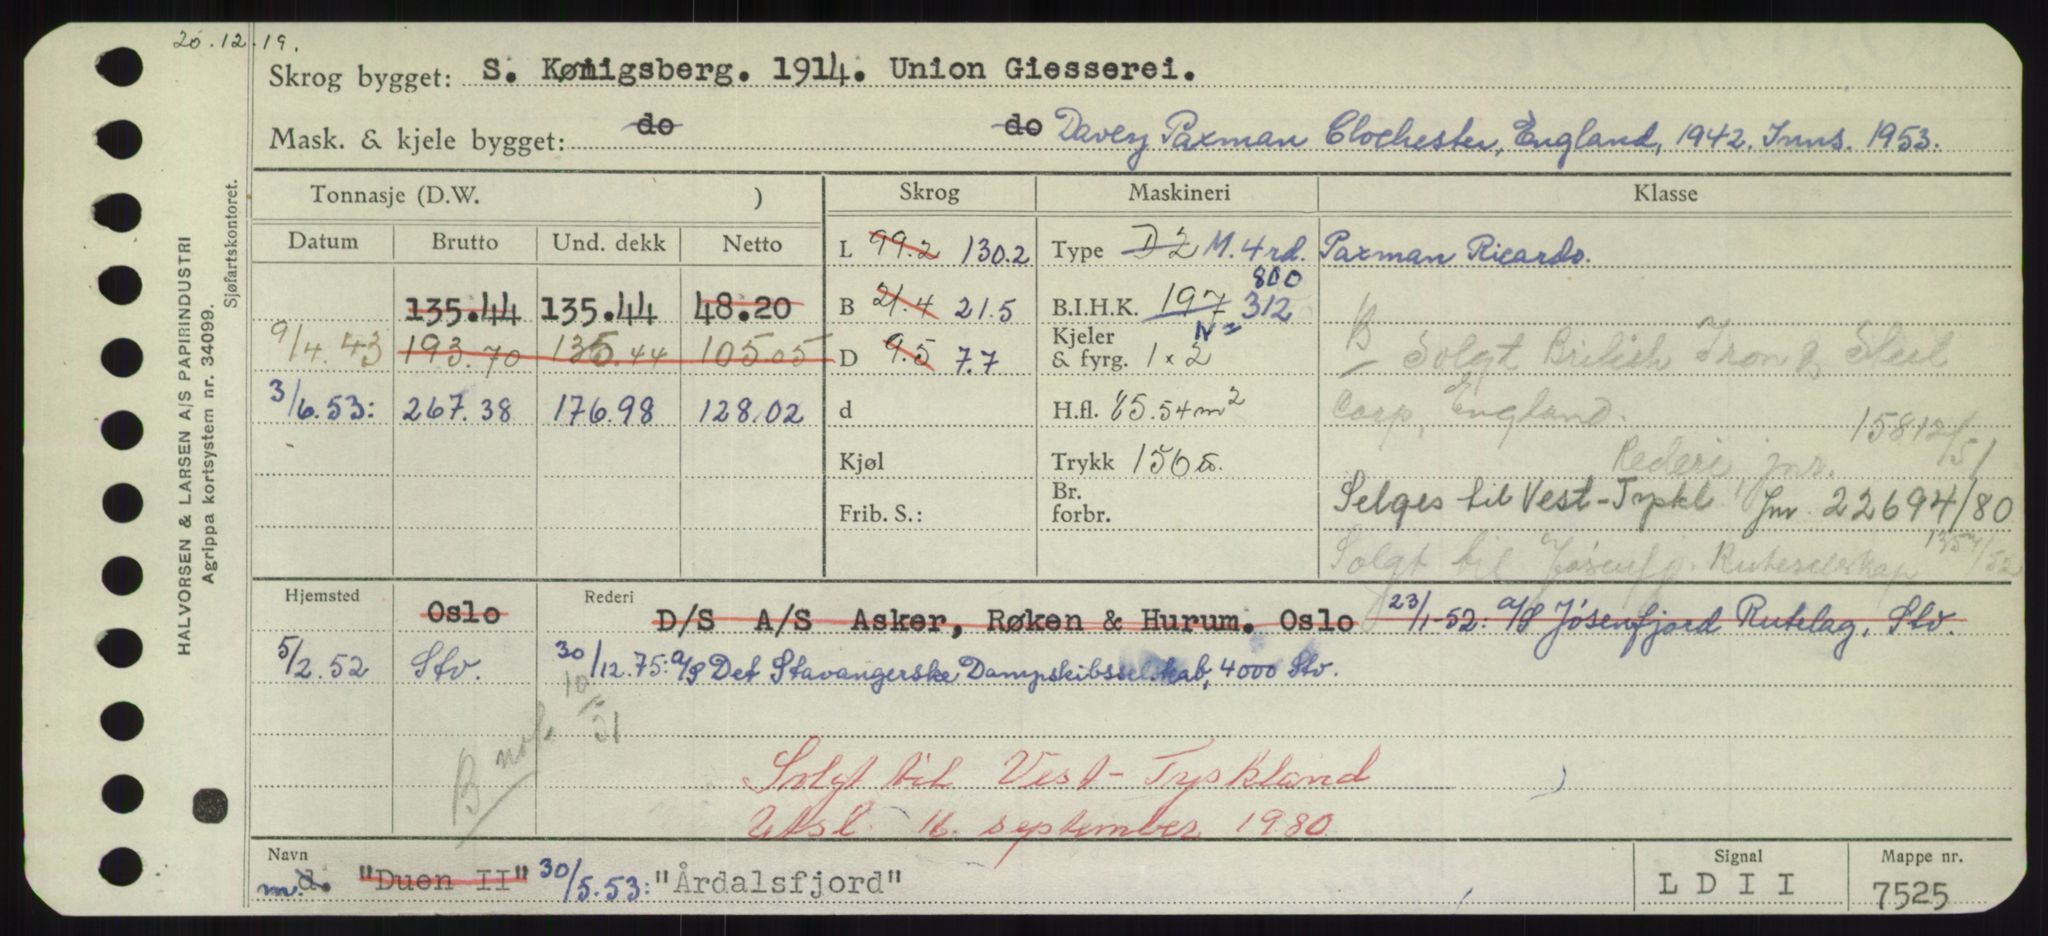 20.12.19.
Skrog bygget: S. Kønigsberg. 1914. Union Giesserei.
Mask. & kjele bygget: do do Davey Paxman Clochester, England, 1942. Inns. 1953.
Tonnasje (D.W. ) Skrog Maskineri Klasse
Datum Brutto Und. dekk Netto L 99.2 130.2 Type D2 M. 4 rd. Paxman Ricardo.
800
135.44 135.44 48.20 B 21.4 21.5 B.I.H.K. 197 312
9/4.43 193.70 135.44 105.05 D 9.5 7.7 Kjeler & fyrg. 1 x 2 B Solgt British Iron & Steel
3/6.53: 267.38 176.98 128.02 d H.fl. 65.54 m2 Corp, England.
15812/51
Kjøl Trykk 150 Rederi jnr.
Frib. S.: Br. forbr. Selges til Vest-Tyskl. Jnr 22694/80
Solgt til Jøsenfj. Ruteselskap
Hjemsted Oslo Rederi D/S A/S Asker, Røken & Hurum. Oslo 23/1-52: A/S Jøsenfjord Rutelag, Stv.
5/2.52 Stv. 30/12.75: A/S Det Stavangerske Dampskibsselskab, 4000 Stv.
B
Solgt til Vest-Tyskland
Utsl. 16. september 1980
Navn Signal Mappe nr.
m d. "Duen II" 30/5.53: "Årdalsfjord" L D I I 7525
HALVORSEN & LARSEN A/S PAPIRINDUSTRI
Agrippa kortsystem nr. 34099.
Sjøfartskontoret.